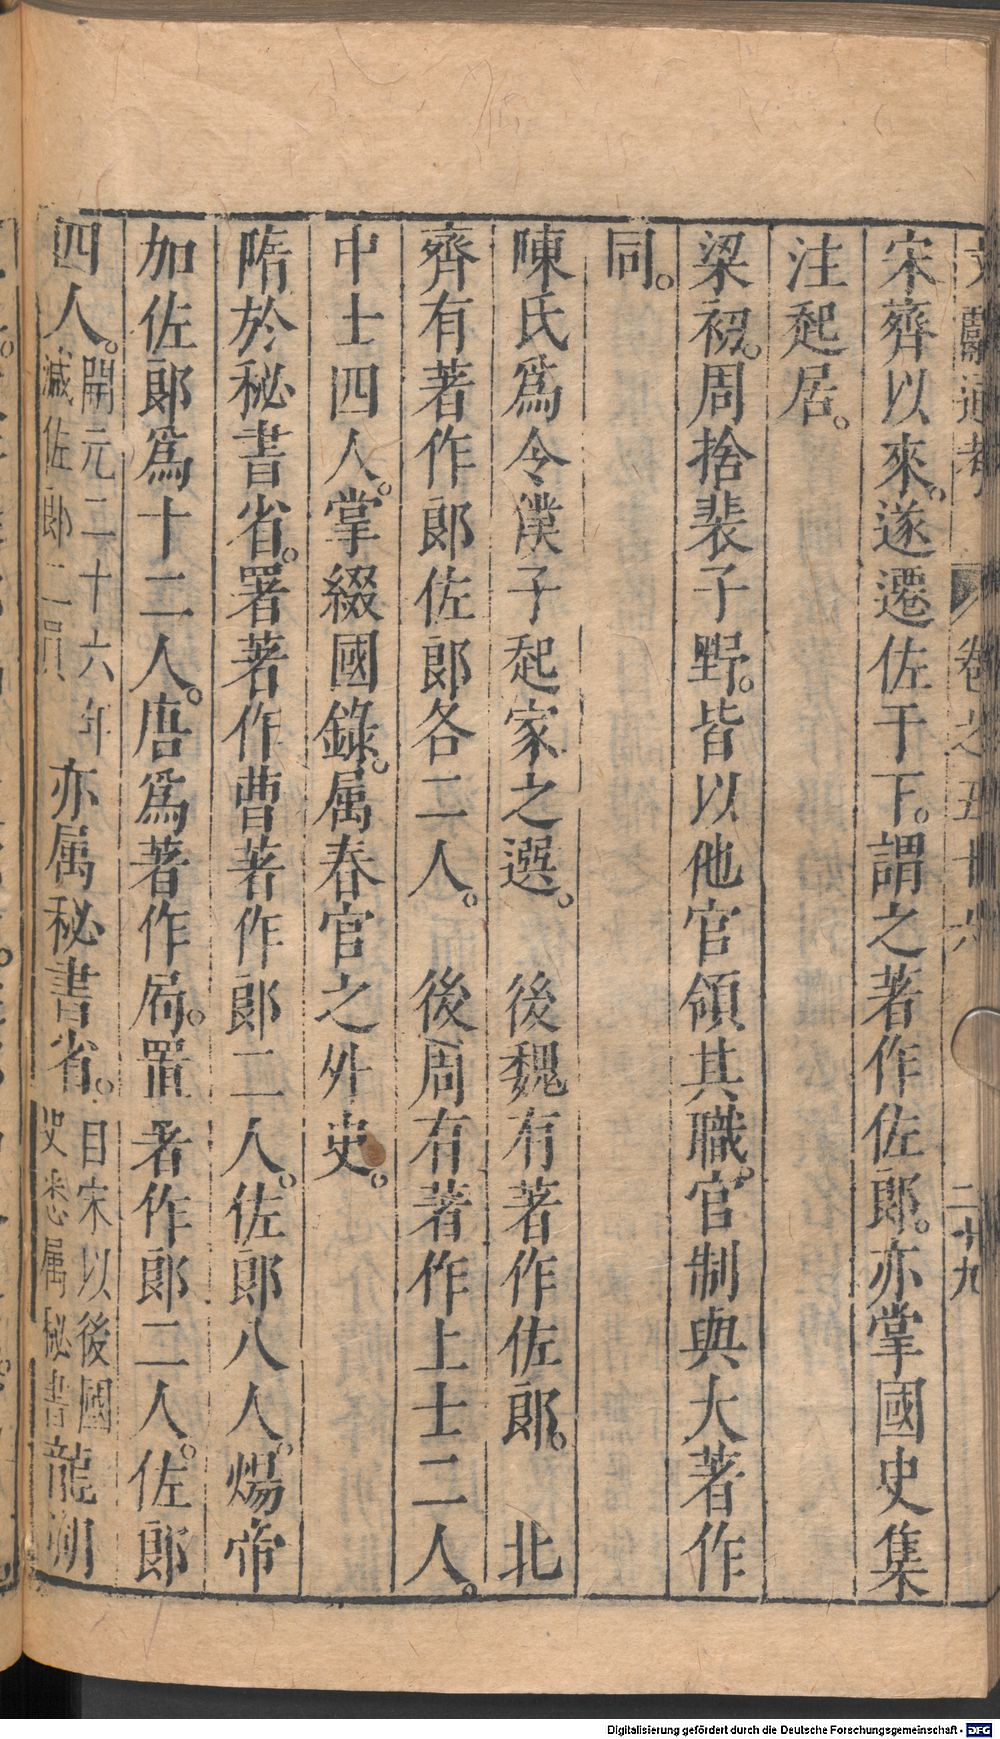 文獻通考 卷之五十六 二十九
宋齊以來。遂遷佐于下。謂之著作佐郎。亦掌國史集
注起居。
梁初。周捨裴子野。皆以他官領其職。官制與大著作
同。
陳氏爲令僕子起家之選。 後魏有著作佐郎。 北
齊有著作郎佐郎各二人。 後周有著作上士二人。
中士四人。掌綴國錄。属春官之外史。
隋於秘書省。署著作曹著作郎二人。佐郎八人。煬帝
加佐郎爲十二人。唐爲著作局。置著作郎二人。佐郎
四人。開元二十六年減佐郎二員亦属秘書省。自宋以後國史悉属秘書龍朔
Digitalisierung gefördert durch die Deutsche Forschungsgemeinschaft - DFG